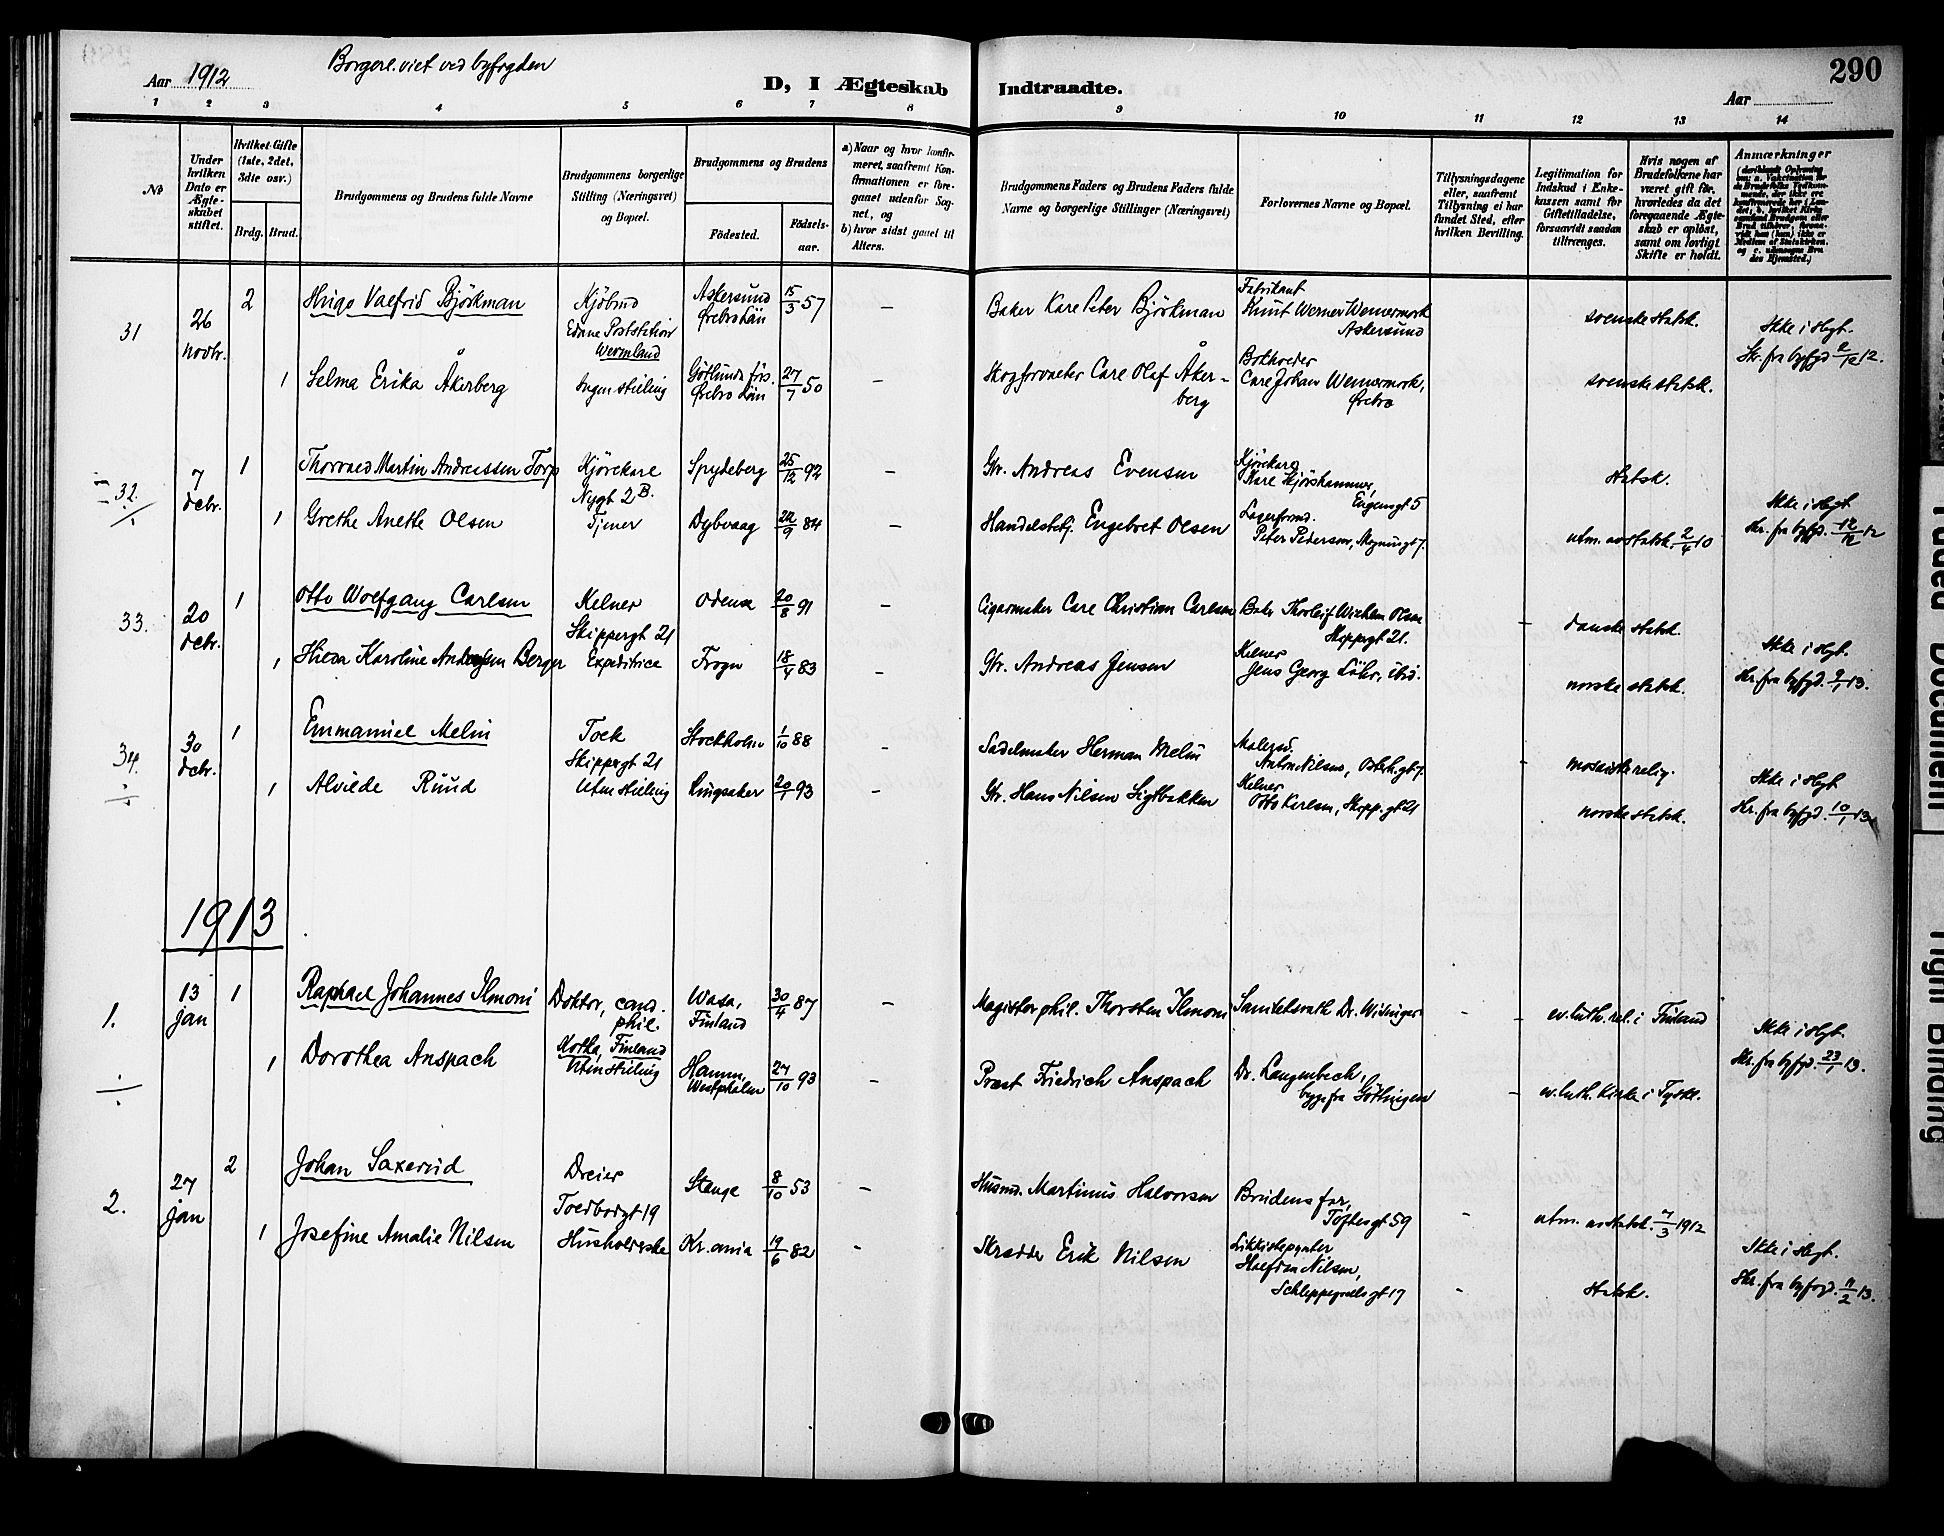 290
Aar 1912
Borgerl. viet ved byfogden
D, I Ægteskab Indtraadte.
Aar
1 2 3 4 5 6 7 8 9 10 11 12 13 14
No
Under hvilken Dato er Ægteskabet stiftet.
Hvilket Gifte (1ste, 2det, 3die osv.)
Brdg. Brud.
Brudgommens og Brudens fulde Navne
Brudgommens borgerlige Stilling (Næringsvei) og Bopæl.
Brudgommens og Brudens
Fødested.
Fødsels-aar.
a) Naar og hvor konfirmeret, saafremt Konfirmationen er foregaaet udenfor Sognet, og
b) hvor sidst gaaet til Alters.
Brudgommens Faders og Brudens Faders fulde Navne og borgerlige Stillinger (Næringsvei)
Forlovernes Navne og Bopæl.
Tillysningsdagene eller, saafremt Tillysning ei har fundet Sted, efter hvilken Bevilling.
Legitimation for Indskud i Enkekassen samt for Giftetilladelse, forsaavidt saadan tiltrænges.
Hvis nogen af Brudefolkene har været gift før, hvorledes da det foregaaende Ægteskab er opløst, samt om lovligt Skifte er holdt.
Anmærkninger
31
26 novbr.
2
Hugo Valfrid Björkman
Kjøbmd
Edane Poststation
Wermland
Askersund
Ørebro Län
15/3 57
–
Baker Karl Peter Björkman
Fabrikant
Knut Werner Wennermork
Askersund
svenske statsk.
Ikke i slgt.
Skr. fra byfgd 2/12 12.
1
Selma Erika Åkerberg
Ingen stilling
Götlunda förs.
Ørebro Län
27/7 50
–
Skogforvalter Carl Olaf Åkerberg
Bokholder
Carl Johan Wennermork,
Ørebro
svenske statsk.
32.
7 debr.
1
Thorvald Martin Andreassen Torp
Kjørekarl
Nygt 2 B.
Spydeberg
25/12 92
–
Gr. Andreas Evensen
Kjørekarl
Karl Kjørshammer,
Eugensgt 5
Statsk.
Ikke i slgt
Skr. fra byfgd. 12/12 12
1
Grethe Anette Olsen
Tjener
Dybvaag
22/9 84
–
Handelsbetj. Engebret Olsen
Lagerformd.
Peter Pedersen,
utm. av statsk. 2/4 10
33.
20 debr.
1
Otto Wolfgang Carlsen
Kelner
Skippergt 21
Odense
20/8 91
–
Cigarmaker Carl Christian Carlsen
Baker Thorleif Wilhelm Olsen
Skippergt 21.
danske statsk.
Ikke i slgt.
Skr. fra byfgd. 9/1 13.
1
Hilda Karoline Andersen Berger
Expeditrice
Frogn
18/4 83
–
Gr. Andreas Jensen
Kelner
Jens Georg Löhr, ibid.
norske statsk.
34.
30 debr.
1
Emmanuel Melin
Kok
Skippergt 21
Stockholm
1/10 88
–
Sadelmaker Herman Melin
Malersv.
Anton Nilsen, Osterh.gt 7.
mosaiske relig.
Ikke i slgt
Skr. fra byfgd. 10/1 13.
1
Alvilde Ruud
Uten stilling
Ringsaker
20/1 93
–
Gr. Hans Nilsen Sigtbakken
Kelner
Otto Karlsen, Skipp.gt 21
norske statsk.
1913
1.
13 jan
1
Raphael Johannes Ilmoni
Doktor, cand. phil.
Kotka, Finland
Wasa,
Finland
30/4 87
–
Magister phil. Thorsten Ilmoni
Sanitetsrath Dr. Wisinger
ev. luth. rel. i Finland
Ikke i slgt
Skr. fra byfgd. 23/1 13.
1
Dorothea Anspach
Uten stilling
Hamm,
Westphalen
24/10 93
–
Prest Friedrich Anspach
Dr. Langenbech,
begge fra Göttingen
ev. luth. Kirke i Tyskl.
2.
27 jan
2
Johan Saxerud
Dreier
Toldbodgt 19
Stange
8/10 53
–
Husmd. Martinus Halvorsen
Brudens far,
Toftesgt 59
utm. av statsk. 7/3 1912
Ikke i slgt.
Skr. fra byfogd. 7/2 13.
1
Josefine Amalie Nilsen
Husholderske
Kr.ania
19/6 82
–
Skrædder Erik Nilsen
Likkistepynter
Halfdan Nilsen,
Schleppegrells gt 17
Statsk.
Faded Document
Tight Binding